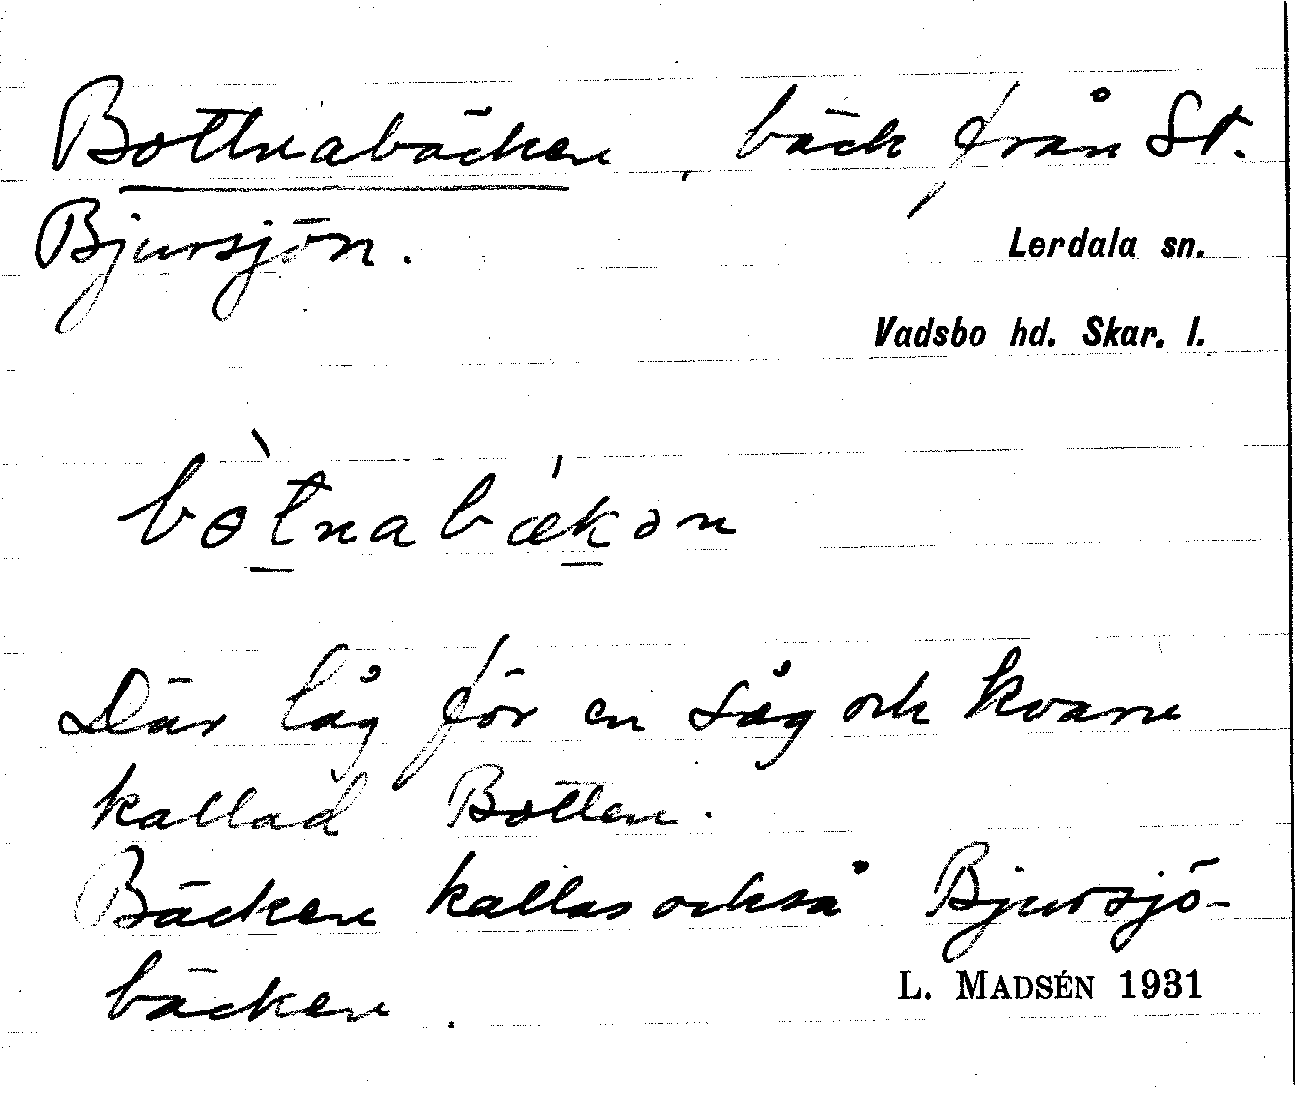 Bottnabäcken, bäck från St.
Bjursjön.
Lerdala sn.
Vadsbo hd. Skar. l.
bòtnabǽkən
Där låg för en såg och kvarn
kallad Botten.
Bäcken kallas också Bjursjö-
bäcken.
L. MADSÉN 1931